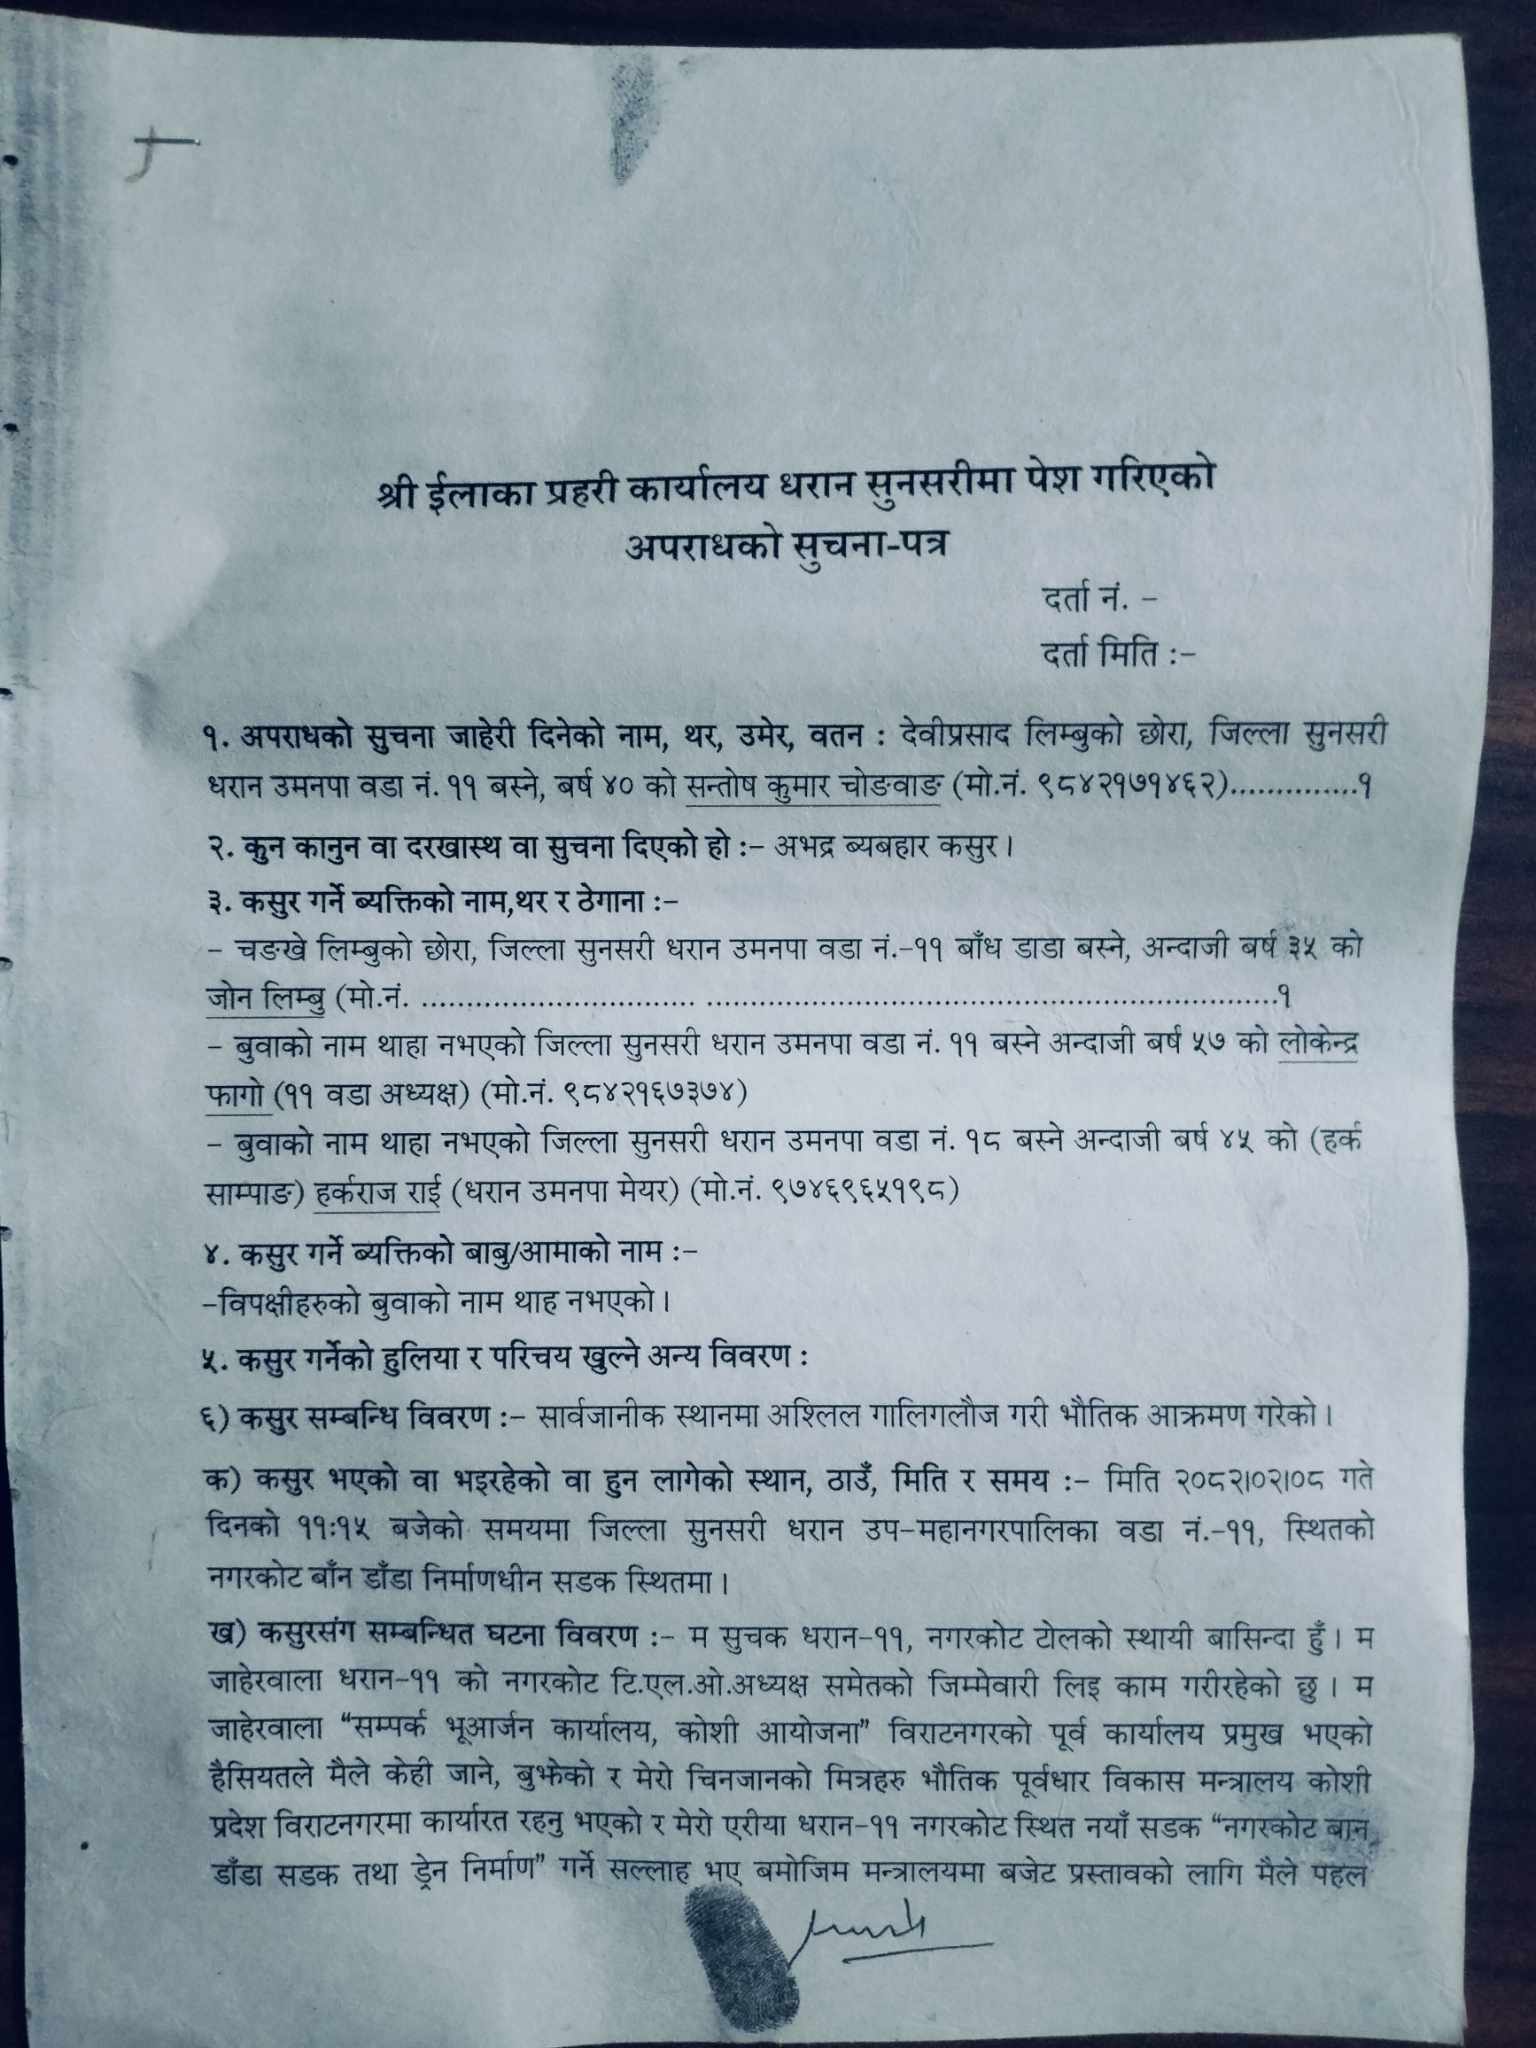 श्री ईलाका प्रहरी कार्यालय धरान सुनसरीमा पेश गरिएको
अपराधको सुचना-पत्र
दर्ता नं. –
दर्ता मिति :–
१. अपराधको सुचना जाहेरी दिनेको नाम, थर, उमेर, वतन : देवीप्रसाद लिम्बुको छोरा, जिल्ला सुनसरी
धरान उमनपा वडा नं. ११ बस्ने, बर्ष ४० को सन्तोष कुमार चोङवाङ (मो.नं. ९८४२१७१४६२)..............१
२. कुन कानुन वा दरखास्थ वा सुचना दिएको हो :– अभद्र ब्यबहार कसुर ।
३. कसुर गर्ने ब्यक्तिको नाम,थर र ठेगाना :–
– चङखे लिम्बुको छोरा, जिल्ला सुनसरी धरान उमनपा वडा नं.–११ बाँध डाडा बस्ने, अन्दाजी बर्ष ३५ को
जोन लिम्बु (मो.नं. .............................. ...............................................................१
– बुवाको नाम थाहा नभएको जिल्ला सुनसरी धरान उमनपा वडा नं. ११ बस्ने अन्दाजी बर्ष ५७ को लोकेन्द्र
फागो (११ वडा अध्यक्ष) (मो.नं. ९८४२१६७३७४)
– बुवाको नाम थाहा नभएको जिल्ला सुनसरी धरान उमनपा वडा नं. १८ बस्ने अन्दाजी बर्ष ४५ को (हर्क
साम्पाङ) हर्कराज राई (धरान उमनपा मेयर) (मो.नं. ९७४६९६५१९८)
४. कसुर गर्ने ब्यक्तिको बाबु/आमाको नाम :–
–विपक्षीहरुको बुवाको नाम थाह नभएको ।
५. कसुर गर्नेको हुलिया र परिचय खुल्ने अन्य विवरण :
६) कसुर सम्बन्धि विवरण :– सार्वजानीक स्थानमा अश्लिल गालिगलौज गरी भौतिक आक्रमण गरेको ।
क) कसुर भएको वा भइरहेको वा हुन लागेको स्थान, ठाउँ, मिति र समय :– मिति २०८२।०२।०८ गते
दिनको ११:१५ बजेको समयमा जिल्ला सुनसरी धरान उप–महानगरपालिका वडा नं.–११, स्थितको
नगरकोट बाँन डाँडा निर्माणधीन सडक स्थितमा ।
ख) कसुरसंग सम्बन्धित घटना विवरण :– म सुचक धरान–११, नगरकोट टोलको स्थायी बासिन्दा हुँ । म
जाहेरवाला धरान–११ को नगरकोट टि.एल.ओ.अध्यक्ष समेतको जिम्मेवारी लिइ काम गरीरहेको छु । म
जाहेरवाला “सम्पर्क भूआर्जन कार्यालय, कोशी आयोजना” विराटनगरको पूर्व कार्यालय प्रमुख भएको
हैसियतले मैले केही जाने, बुझेको र मेरो चिनजानको मित्रहरु भौतिक पूर्वधार विकास मन्त्रालय कोशी
प्रदेश विराटनगरमा कार्यारत रहनु भएको र मेरो एरीया धरान–११ नगरकोट स्थित नयाँ सडक “नगरकोट बान
डाँडा सडक तथा ड्रेन निर्माण” गर्ने सल्लाह भए बमोजिम मन्त्रालयमा बजेट प्रस्तावको लागि मैले पहल